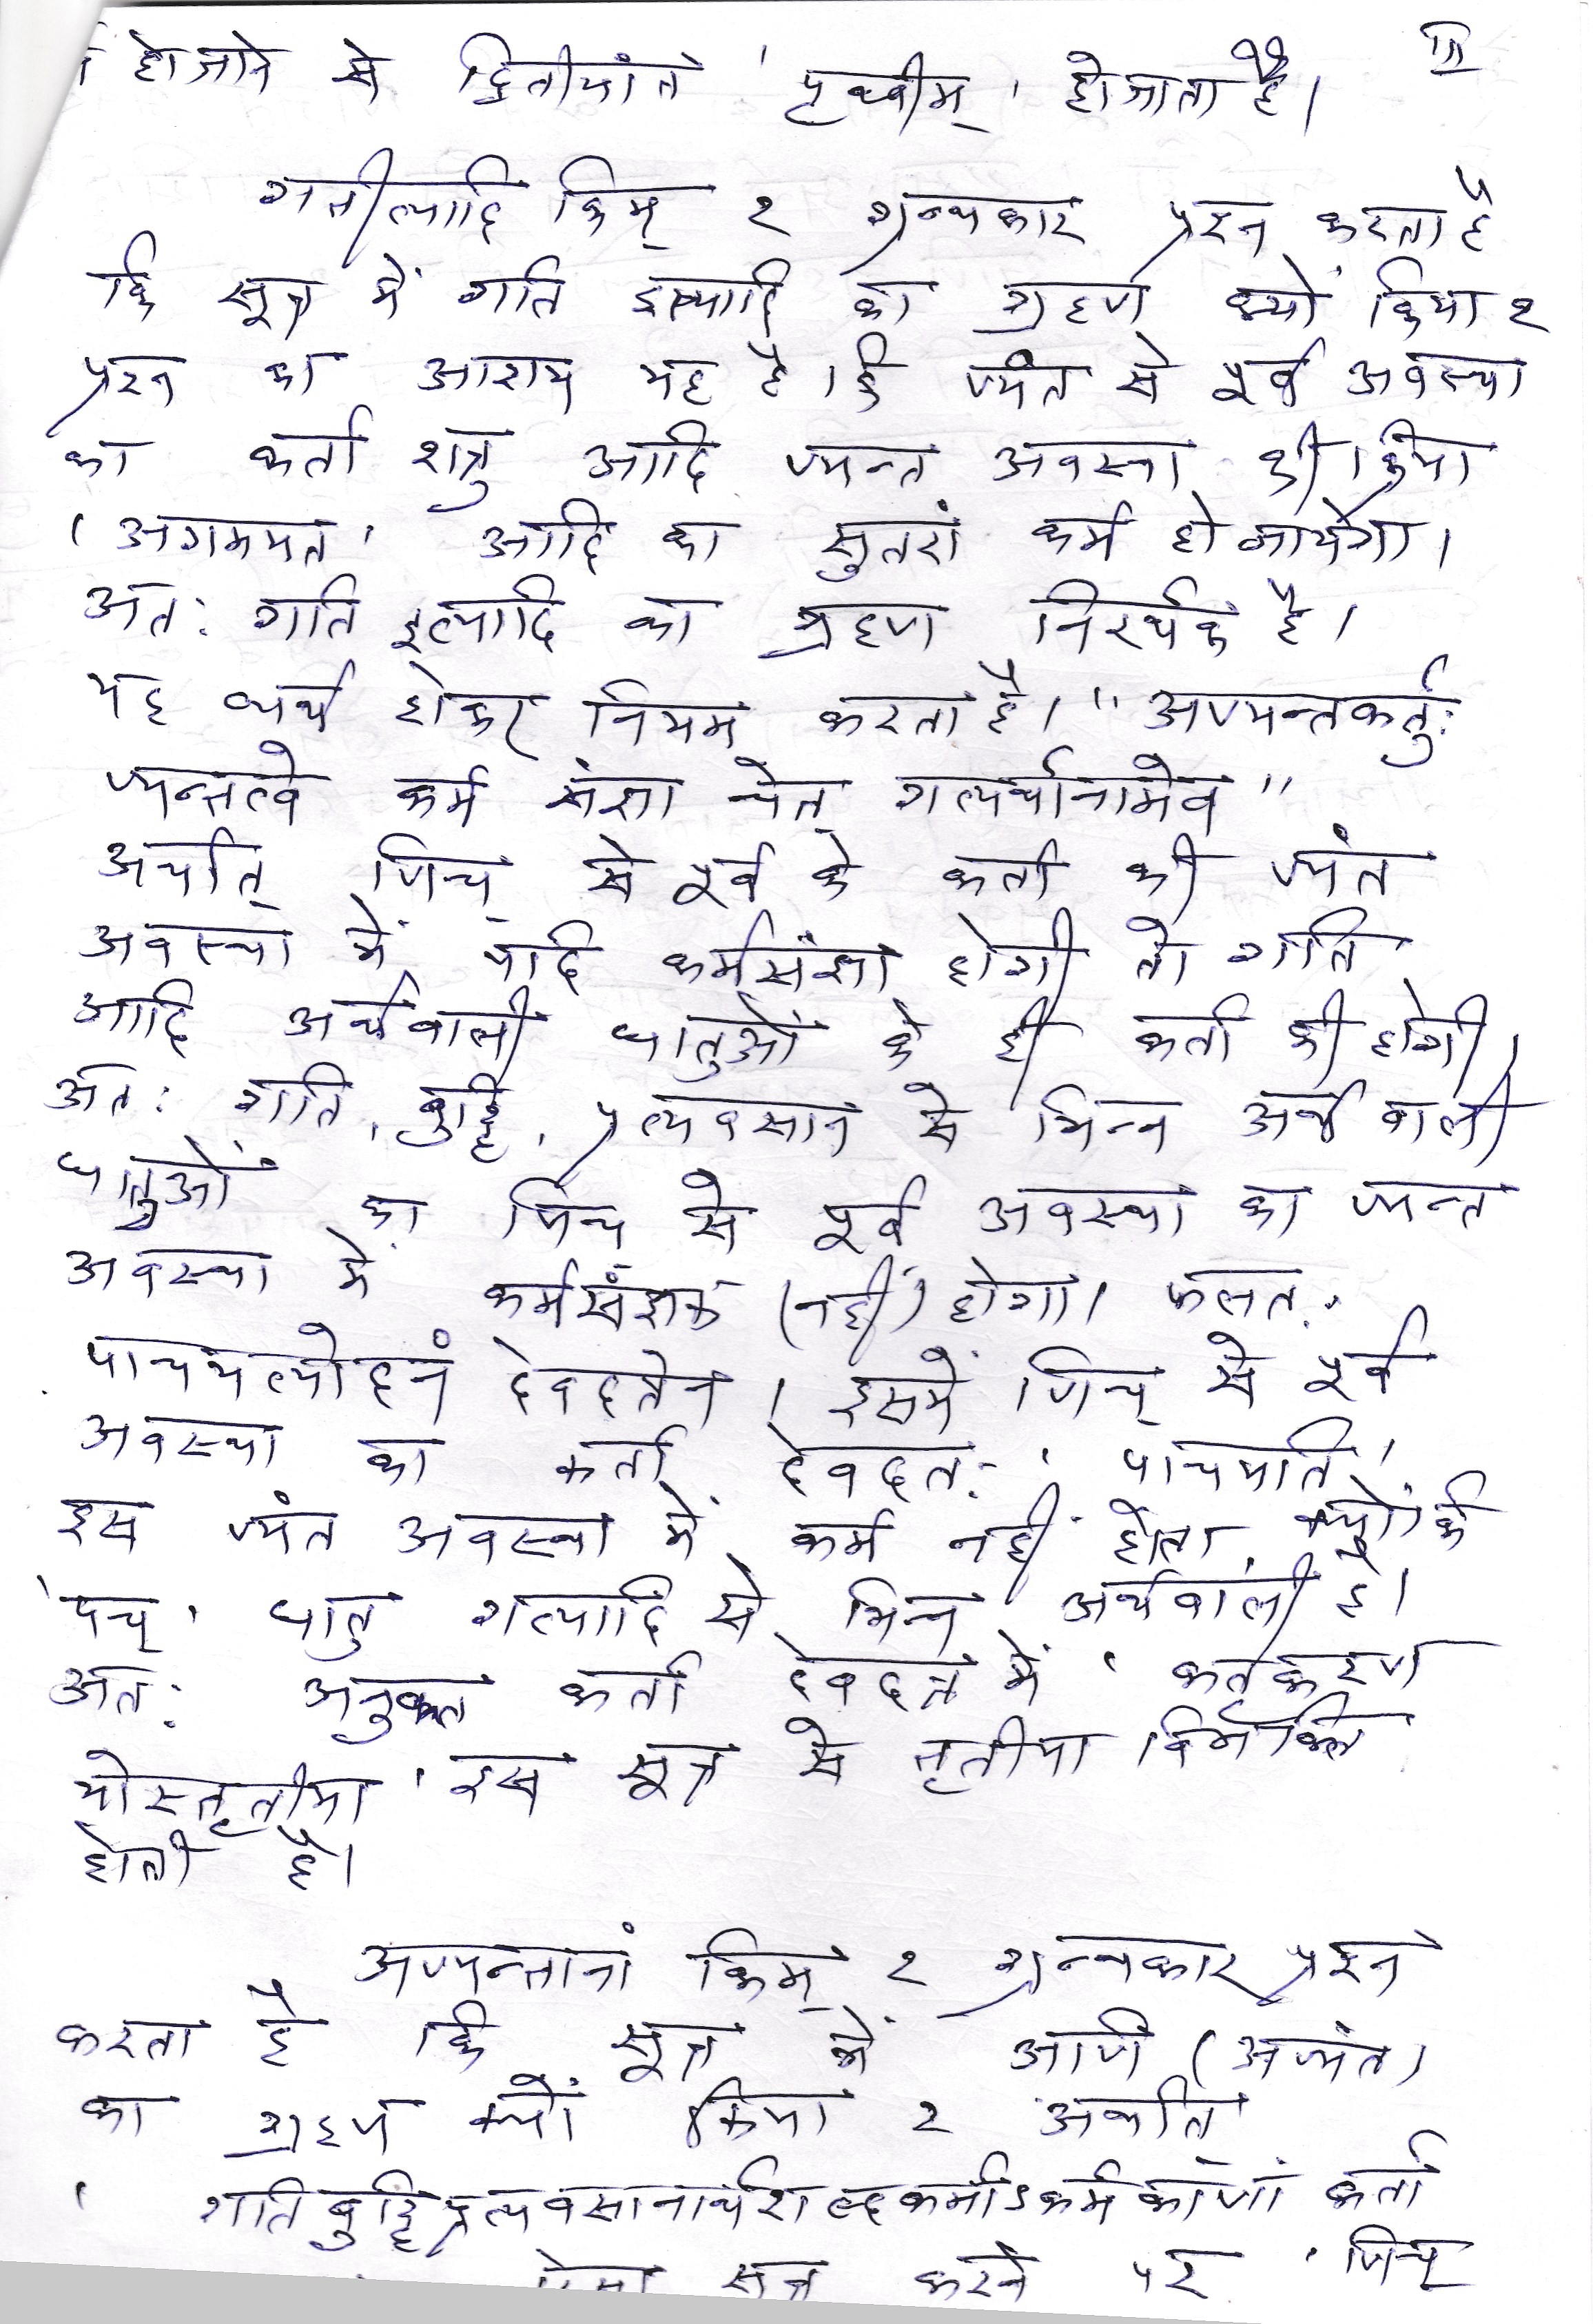 हो जाने से द्वितीयांत 'पृथ्वीम्' हो जाता है।
गतीत्यादि किम् ? ग्रन्थकार प्रश्न करता है
कि सूत्र में गति इत्यादि का ग्रहण क्यों किया ?
प्रश्न का आशय यह है। कि ण्यंत से पूर्व अवस्था
का कर्ता शत्रु आदि ण्यन्त अवस्था की क्रिया
'अगमयत' आदि का सुतरां कर्म हो जायेगा।
अतः गति इत्यादि का ग्रहण निरर्थक है।
यह व्यर्थ होकर नियम करता है। "अण्यन्तकर्तुः
ण्यन्तत्वे कर्म संज्ञा चेत् गत्यर्थानामेव"
अर्थात् णिच् से पूर्व के कर्ता की ण्यंत
अवस्था में यदि कर्मसंज्ञा होगी तो गति
आदि अर्थवाली धातुओं के ही कर्ता की होगी।
अतः गति, बुद्धि, प्रत्यवसान से भिन्न अर्थ वाली
धातुओं का णिच से पूर्व अवस्था का ण्यन्त
अवस्था में कर्मसंज्ञक (नहीं) होगा। फलतः
पाचयत्योदनं देवदत्तेन। इसमें णिच् से पूर्व
अवस्था का कर्ता देवदतः 'पाचयति'
इस ण्यंत अवस्था में कर्म नहीं होता, क्यों कि
'पच्' धातु गत्यादि से भिन्न अर्थवाली है।
अतः अनुक्त कर्ता देवदत्त में 'कर्तृकरण
योस्तृतीया' इस सूत्र से तृतीया विभक्ति
होती है।
अण्यन्तानां किम् ? ग्रन्थकार प्रश्न
करता है कि सूत्र में अणि (अण्यंत)
का ग्रहण क्यों किया ? अर्थात्
'गतिबुद्धिप्रत्यवसानार्थशब्दकर्माऽकर्मकाणां कर्ता
सूत्र करने पर 'णिच्